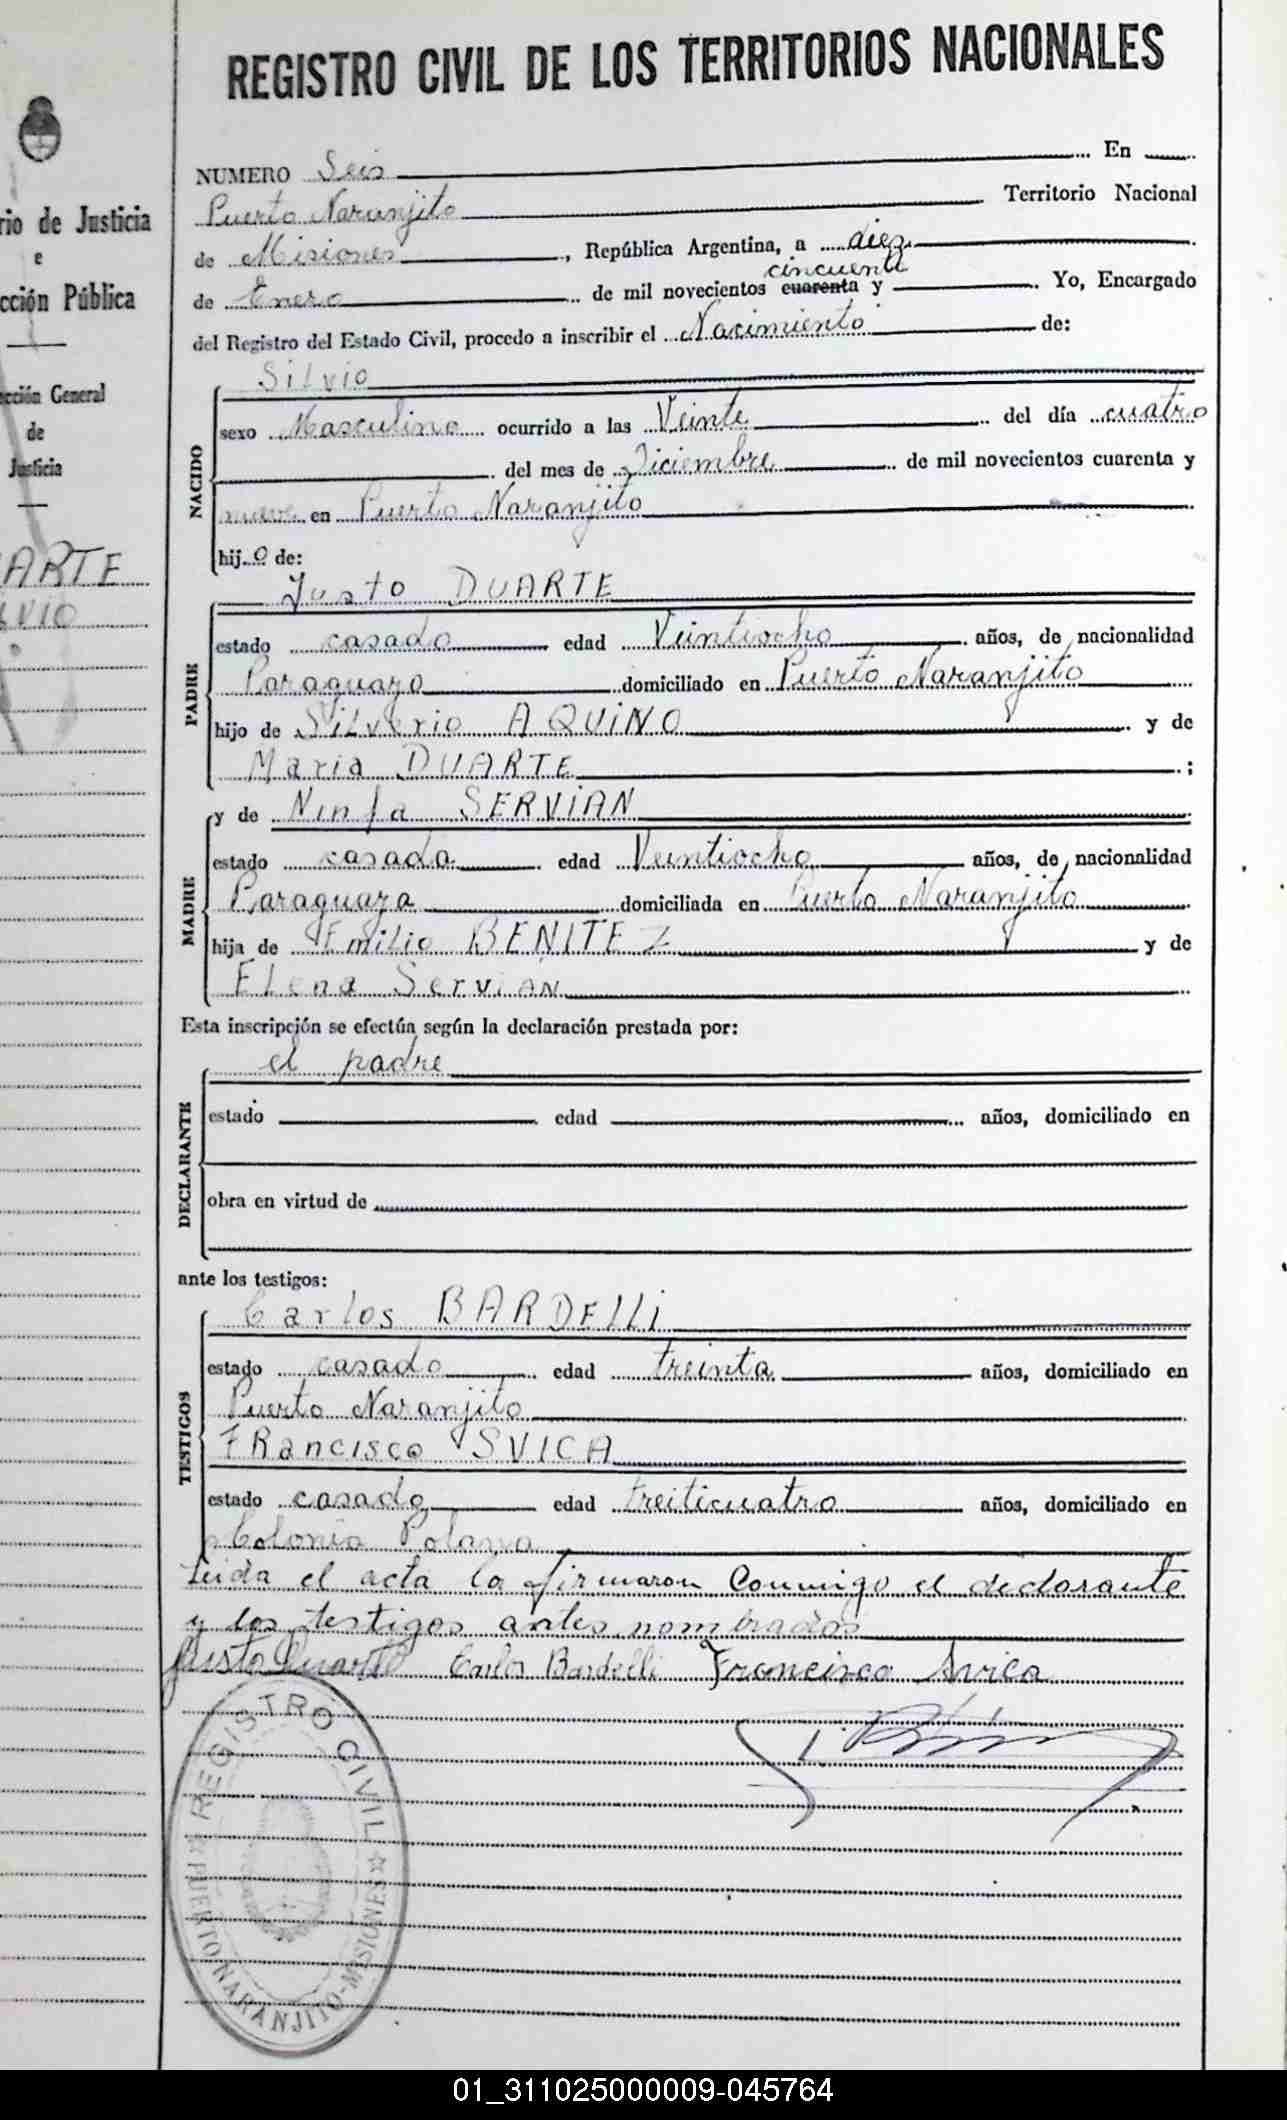 REGISTRO CIVIL DE LOS TERRITORIOS NACIONALES
rio de Justicia
e
cción Pública
cción General
de
Justicia
ARTE
LVIO
NUMERO Seis En
Puerto Naranjito Territorio Nacional
de Misiones, República Argentina, a diez
cincuenta
de Enero de mil novecientos cuarenta y Yo, Encargado
del Registro del Estado Civil, procedo a inscribir el Nacimiento de:
NACIDO
Silvio
sexo Masculino ocurrido a las Veinte del día cuatro
del mes de Diciembre de mil novecientos cuarenta y
nueve en Puerto Naranjito
hijo de:
PADRE
Justo DUARTE
estado casado edad Veintiocho años, de nacionalidad
Paraguayo domiciliado en Puerto Naranjito
hijo de Silverio AQUINO y de
Maria DUARTE ;
MADRE
y de Ninfa SERVIAN
estado casada edad Veintiocho años, de nacionalidad
Paraguaya domiciliada en Puerto Naranjito
hija de Emilio BENITEZ y de
Elena Servian
Esta inscripción se efectúa según la declaración prestada por:
DECLARANTE
el padre
estado edad años, domiciliado en
obra en virtud de
ante los testigos:
TESTIGOS
Carlos BARDELLi
estado casado edad treinta años, domiciliado en
Puerto Naranjito
FRancisco SVICA
estado casado edad treiticuatro años, domiciliado en
Colonia Polana
Leida el acta la firmaron Conmigo el declarante
y los testigos antes nombrados
Justo Duarte Carlos Bardelli Francisco Svica
REGISTRO CIVIL
PUERTO NARANJITO-MISIONES
01_311025000009-045764